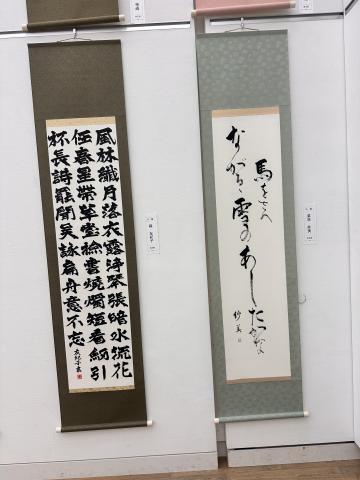 馬をさへ
ながむる雪のあしたかな
風林纖月落衣露淨琴張暗水流花
徑春星帶草堂檢書燒燭短看劔引
杯長詩罷聞吴詠扁舟意不忘
友紀子書